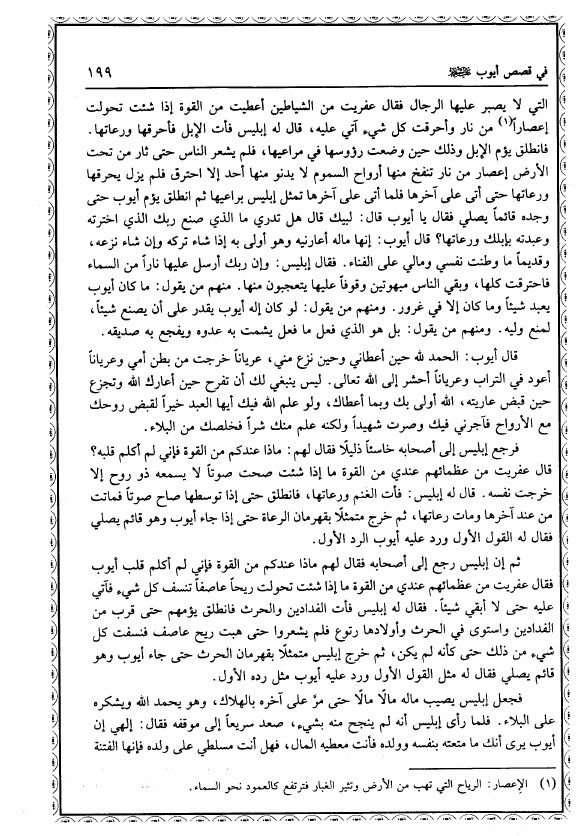 في قصص أيوب ﷺ ١٩٩
التي لا يصبر عليها الرجال فقال عفريت من الشياطين أعطيت من القوة إذا شئت تحولت
إعصاراً(١) من نار وأحرقت كل شيء آتي عليه، قال له إبليس فأت الإبل فأحرقها ورعاتها.
فانطلق يؤم الإبل وذلك حين وضعت رؤوسها في مراعيها، فلم يشعر الناس حتى ثار من تحت
الأرض إعصار من نار تنفخ منها أرواح السموم لا يدنو منها أحد إلا احترق فلم يزل يحرقها
ورعاتها حتى أتى على آخرها فلما أتى على آخرها تمثل إبليس براعيها ثم انطلق يؤم أيوب حتى
وجده قائماً يصلي فقال يا أيوب قال: لبيك قال هل تدري ما الذي صنع ربك الذي اخترته
وعبدته بإبلك ورعاتها؟ قال أيوب: إنها ماله أعارنيه وهو أولى به إذا شاء تركه وإن شاء نزعه،
وقديماً ما وطنت نفسي ومالي على الفناء. فقال إبليس: وإن ربك أرسل عليها ناراً من السماء
فاحترقت كلها، وبقي الناس مبهوتين وقوفاً عليها يتعجبون منها. منهم من يقول: ما كان أيوب
يعبد شيئاً وما كان إلا في غرور. ومنهم من يقول: لو كان إله أيوب يقدر على أن يصنع شيئاً،
لمنع وليه. ومنهم من يقول: بل هو الذي فعل ما فعل يشمت به عدوه ويفجع به صديقه.
قال أيوب: الحمد لله حين أعطاني وحين نزع مني، عرياناً خرجت من بطن أمي وعرياناً
أعود في التراب وعرياناً أحشر إلى الله تعالى. ليس ينبغي لك أن تفرح حين أعارك الله وتجزع
حين قبض عاريته، الله أولى بك وبما أعطاك، ولو علم الله فيك أيها العبد خيراً لقبض روحك
مع الأرواح فآجرني فيك وصرت شهيداً ولكنه علم منك شراً فخلصك من البلاء.
فرجع إبليس إلى أصحابه خاسئاً ذليلًا فقال لهم: ماذا عندكم من القوة فإني لم أكلم قلبه؟
قال عفريت من عظمائهم عندي من القوة ما إذا شئت صحت صوتاً لا يسمعه ذو روح إلا
خرجت نفسه. قال له إبليس: فأت الغنم ورعاتها، فانطلق حتى إذا توسطها صاح صوتاً فماتت
من عند آخرها ومات رعاتها، ثم خرج متمثلًا بقهرمان الرعاة حتى إذا جاء أيوب وهو قائم يصلي
فقال له القول الأول ورد عليه أيوب الرد الأول.
ثم إن إبليس رجع إلى أصحابه فقال لهم ماذا عندكم من القوة فإني لم أكلم قلب أيوب
فقال عفريت من عظمائهم عندي من القوة ما إذا شئت تحولت ريحاً عاصفاً تنسف كل شيء فآتي
عليه حتى لا أبقي شيئاً. فقال له إبليس فأت الفدادين والحرث فانطلق يؤمهم حتى قرب من
الفدادين واستوى في الحرث وأولادها رتوع فلم يشعروا حتى هبت ريح عاصف فنسفت كل
شيء من ذلك حتى كأنه لم يكن، ثم خرج إبليس متمثلًا بقهرمان الحرث حتى جاء أيوب وهو
قائم يصلي فقال له مثل القول الأول ورد عليه أيوب مثل رده الأول.
فجعل إبليس يصيب ماله مالًا مالًا حتى مرَّ على آخره بالهلاك، وهو يحمد الله ويشكره
على البلاء. فلما رأى إبليس أنه لم ينجح منه بشيء، صعد سريعاً إلى موقفه فقال: إلهي إن
أيوب يرى أنك ما متعته بنفسه وولده فأنت معطيه المال، فهل أنت مسلطي على ولده فإنها الفتنة
(١) الإعصار: الرياح التي تهب من الأرض وتثير الغبار فترتفع كالعمود نحو السماء.